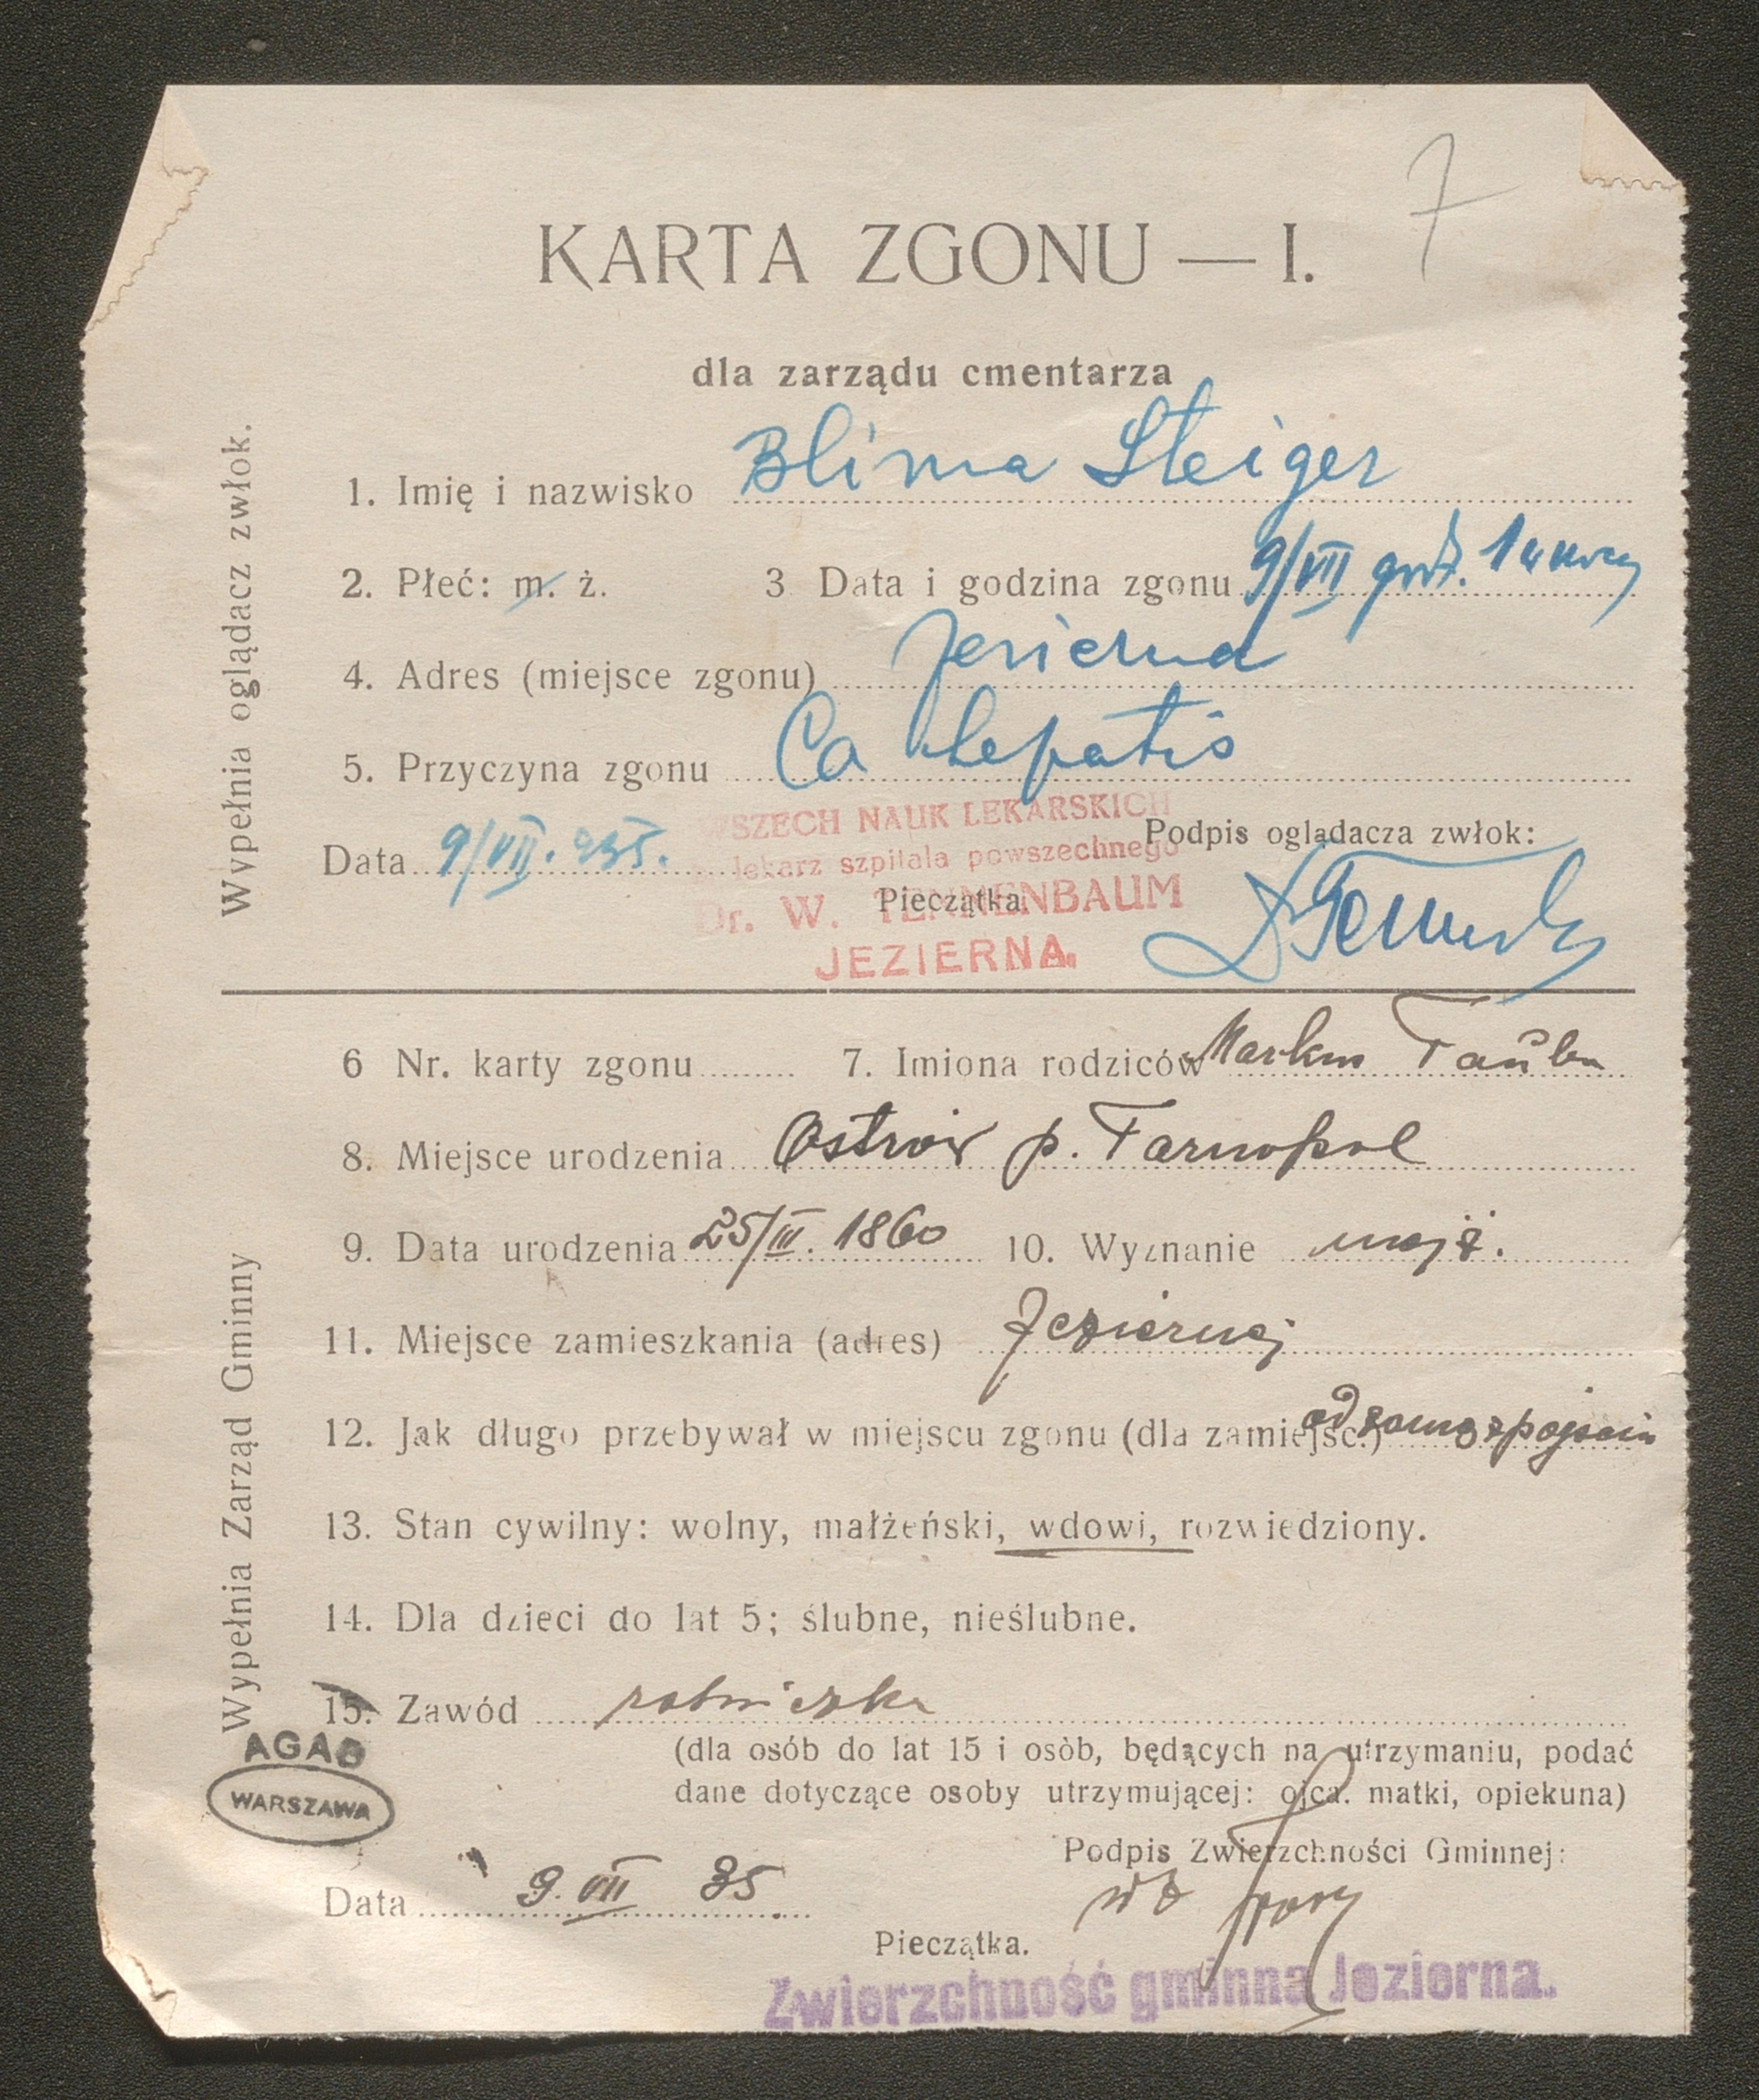 7
KARTA ZGONU — I.
dla zarządu cmentarza
Wypełnia oglądacz zwłok.
1. Imię i nazwisko Blima Steiger
2. Płeć: m. ż. 3 Data i godzina zgonu 9/VII god. 1 w nocy
4. Adres (miejsce zgonu) Jezierna
5. Przyczyna zgonu Ca hepatis
WSZECH NAUK LEKARSKICH
lekarz szpitala powszechnego
Dr. W. TENNENBAUM
JEZIERNA.
Podpis oglądacza zwłok:
Data 9/VII. 935.
Pieczątka.
Wypełnia Zarząd Gminny
6 Nr. karty zgonu 7. Imiona rodziców Markus Taube
8. Miejsce urodzenia Ostrów p. Tarnopol
9. Data urodzenia 25/III. 1860 10. Wyznanie mojż.
11. Miejsce zamieszkania (adres) Jeziernej
12. Jak długo przebywał w miejscu zgonu (dla zamiejsc.) od
13. Stan cywilny: wolny, małżeński, wdowi, rozwiedziony.
14. Dla dzieci do lat 5; ślubne, nieślubne.
15. Zawód
(dla osób do lat 15 i osòb, będących na utrzymaniu, podać
dane dotyczące osoby utrzymującej: ojca. matki, opiekuna)
AGAD
WARSZAWA
Podpis Zwierzchności Gminnej:
Data 9. VII 35
wz
Pieczątka.
Zwierzchność gminna Jezierna.